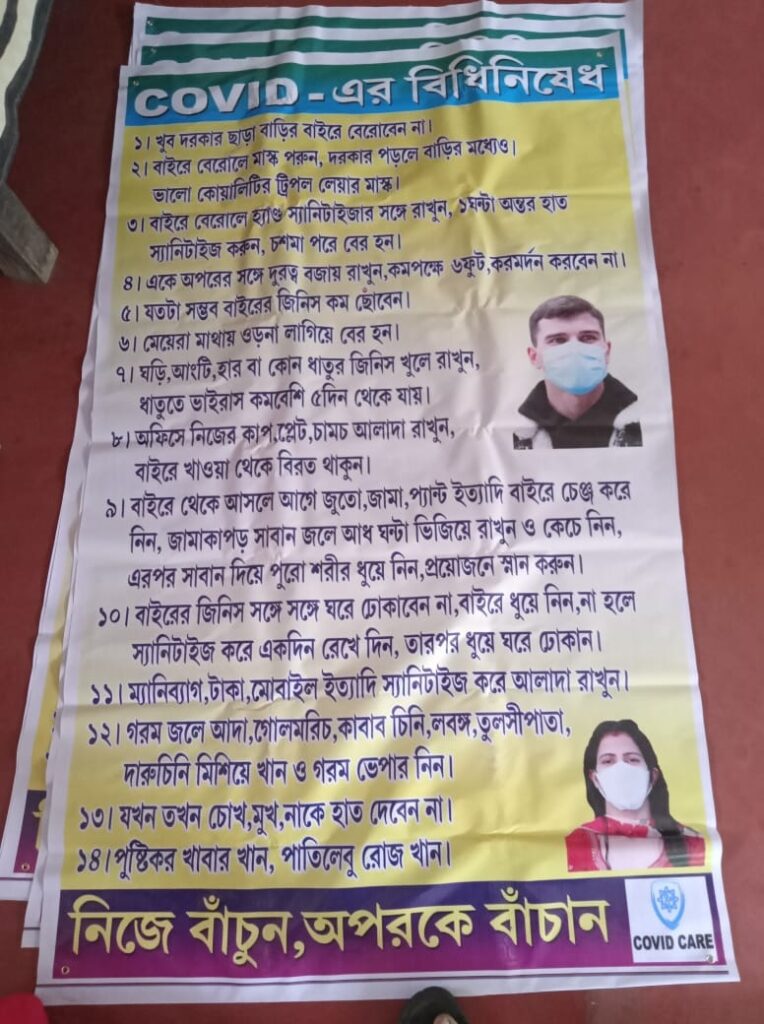 COVID - এর বিধিনিষেধ
১। খুব দরকার ছাড়া বাড়ির বাইরে বেরোবেন না।
২। বাইরে বেরোলে মাস্ক পরুন, দরকার পড়লে বাড়ির মধ্যেও।
ভালো কোয়ালিটির ট্রিপল লেয়ার মাস্ক।
৩। বাইরে বেরোলে হ্যাণ্ড স্যানিটাইজার সঙ্গে রাখুন, ১ঘন্টা অন্তর হাত
স্যানিটাইজ করুন, চশমা পরে বের হন।
৪। একে অপরের সঙ্গে দুরত্ব বজায় রাখুন,কমপক্ষে ৬ফুট,করমর্দন করবেন না।
৫। যতটা সম্ভব বাইরের জিনিস কম ছোঁবেন।
৬। মেয়েরা মাথায় ওড়না লাগিয়ে বের হন।
৭। ঘড়ি,আংটি,হার বা কোন ধাতুর জিনিস খুলে রাখুন,
ধাতুতে ভাইরাস কমবেশি ৫দিন থেকে যায়।
৮। অফিসে নিজের কাপ,প্লেট,চামচ আলাদা রাখুন,
বাইরে খাওয়া থেকে বিরত থাকুন।
৯। বাইরে থেকে আসলে আগে জুতো,জামা,প্যান্ট ইত্যাদি বাইরে চেঞ্জ করে
নিন, জামাকাপড় সাবান জলে আধ ঘন্টা ভিজিয়ে রাখুন ও কেচে নিন,
এরপর সাবান দিয়ে পুরো শরীর ধুয়ে নিন,প্রয়োজনে স্নান করুন।
১০। বাইরের জিনিস সঙ্গে সঙ্গে ঘরে ঢোকাবেন না,বাইরে ধুয়ে নিন,না হলে
স্যানিটাইজ করে একদিন রেখে দিন, তারপর ধুয়ে ঘরে ঢোকান।
১১। ম্যানিব্যাগ,টাকা,মোবাইল ইত্যাদি স্যানিটাইজ করে আলাদা রাখুন।
১২। গরম জলে আদা,গোলমরিচ,কাবাব চিনি,লবঙ্গ,তুলসীপাতা,
দারুচিনি মিশিয়ে খান ও গরম ভেপার নিন।
১৩। যখন তখন চোখ,মুখ,নাকে হাত দেবেন না।
১৪। পুষ্টিকর খাবার খান, পাতিলেবু রোজ খান।
নিজে বাঁচুন,অপরকে বাঁচান
COVID CARE